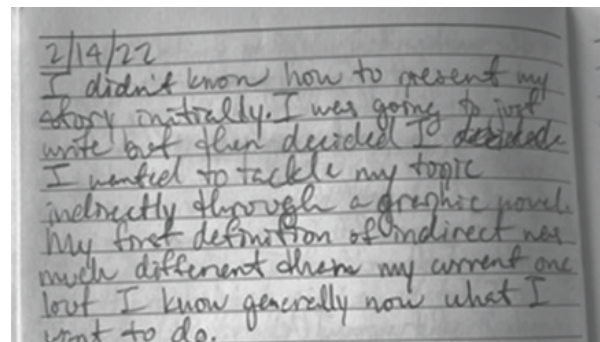 2/14/22
I didn't know how to present my
story initially. I was going to just
write but then decided I decided
I wanted to tackle my topic
indirectly through a graphic novel.
My first definition of indirect was
much different them my current one
but I know generally now what I
want to do.